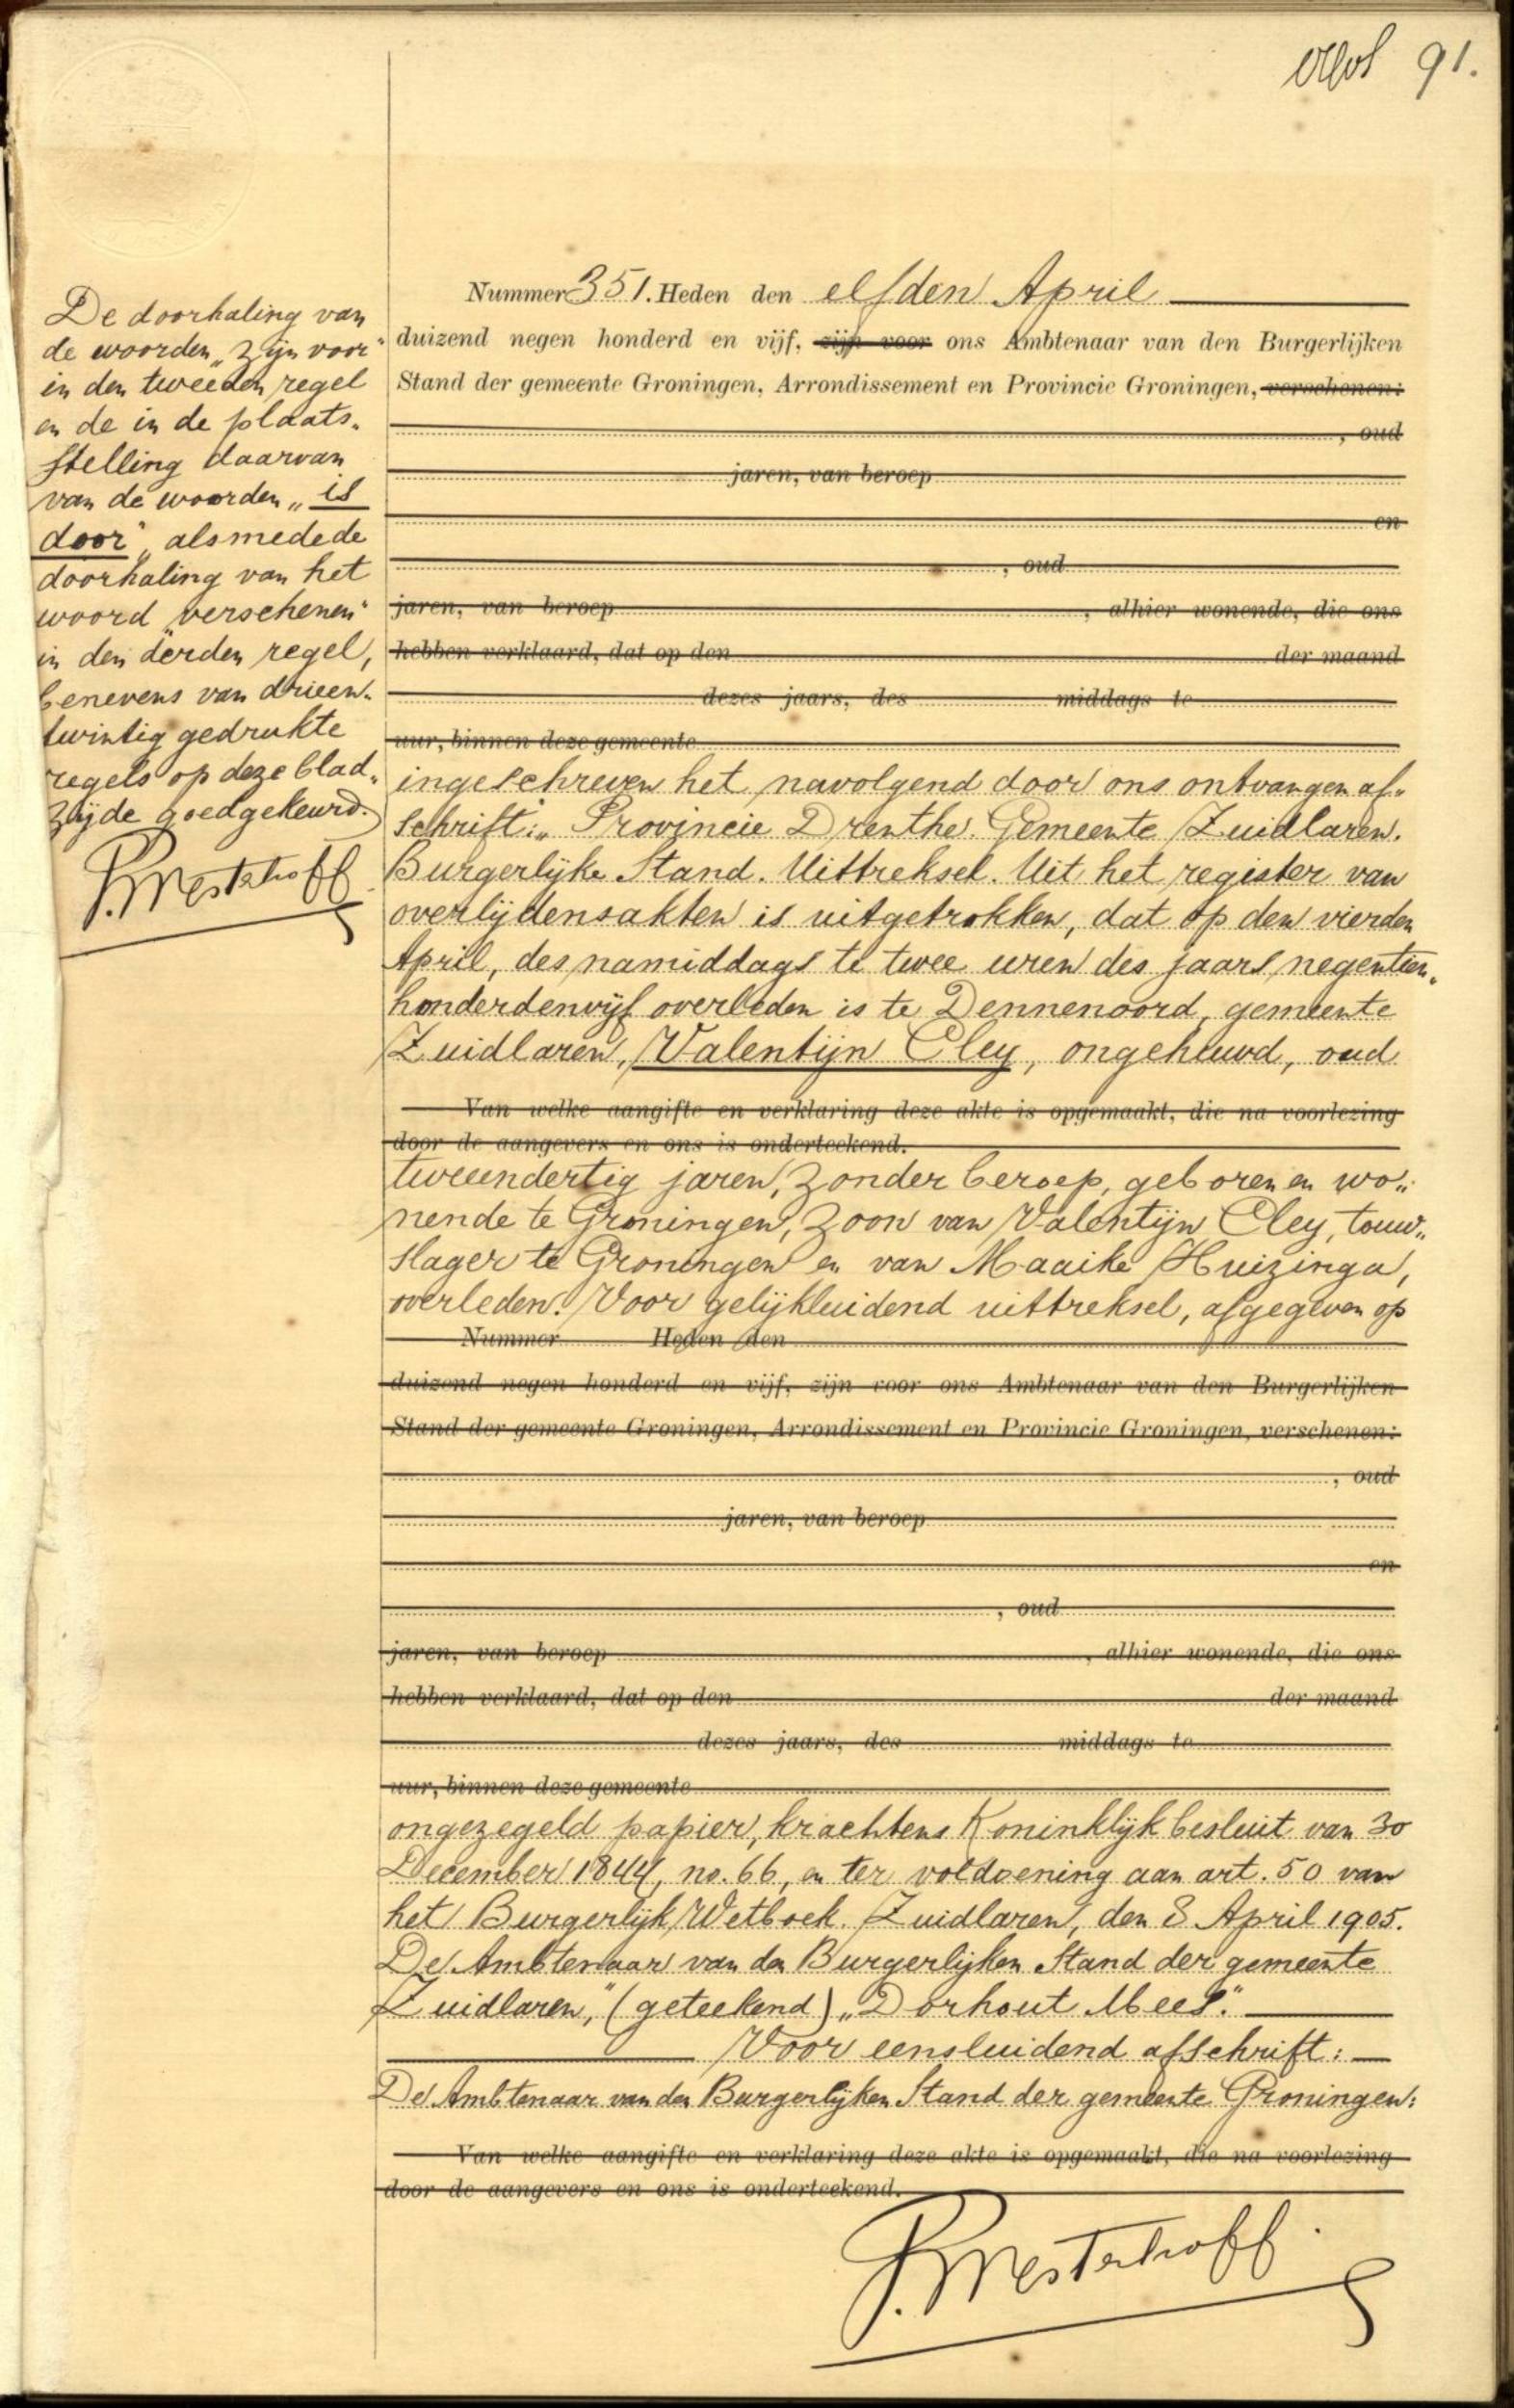 91.
De doorhaling van
de woorden „zijn voor"
in den tweeden regel
en de in de plaats„
stelling daarvan
van de woorden „is
door", alsmede de
doorhaling van het
woord „verschenen"
in den derden regel,
benevens van drieen„
twintig gedrukte
regels op deze blad„
zijde goedgekeurd.
P. Mesterhoff
Nummer 351. Heden den elfden April
duizend negen honderd en vijf, zijn voor ons Ambtenaar van den Burgerlijken
Stand der gemeente Groningen, Arrondissement en Provincie Groningen, verschenen:
, oud
jaren, van beroep
en
, oud
jaren, van beroep , alhier wonende, die ons
hebben verklaard, dat op den der maand
dezes jaars, des middags te
uur, binnen deze gemeente
ingeschreven het navolgend door ons ontvangen af„
schrift: „Provincie Drenthe. Gemeente Zuidlaren.
Burgerlijke Stand. Uittreksel. Uit het register van
overlijdensakten is uitgetrokken, dat op den vierden
April, des namiddags te twee uren des jaars negentien„
honderdenvijf overleden is te Dennenoord, gemeente
Zuidlaren, Valentijn Cley, ongehuwd, oud
Van welke aangifte en verklaring deze akte is opgemaakt, die na voorlezing
door de aangevers en ons is onderteekend.
tweeendertig jaren, zonder beroep, geboren en wo„
nende te Groningen, zoon van Valentijn Cley, touw„
slager te Groningen en van Maaike Huizinga,
overleden. Voor gelijkluidend uittreksel, afgegeven op
Nummer Heden den
duizend negen honderd en vijf, zijn voor ons Ambtenaar van den Burgerlijken
Stand der gemeente Groningen, Arrondissement en Provincie Groningen, verschenen:
, oud
jaren, van beroep
en
, oud
jaren, van beroep , alhier wonende, die ons
hebben verklaard, dat op den der maand
dezes jaars, des middags te
uur, binnen deze gemeente
ongezegeld papier, krachtens Koninklijk besluit van 30
December 1844, no. 66, en ter voldoening aan art. 50 van
het Burgerlijk Wetboek. Zuidlaren, den 8 April 1905.
De Ambtenaar van den Burgerlijken Stand der gemeente
Zuidlaren," (geteekend) „Dorhout Mees."
Voor eensluidend afschrift:
De Ambtenaar van den Burgerlijken Stand der gemeente Groningen:
Van welke aangifte en verklaring deze akte is opgemaakt, die na voorlezing
door de aangevers en ons is onderteekend.
P. Mesterhoff